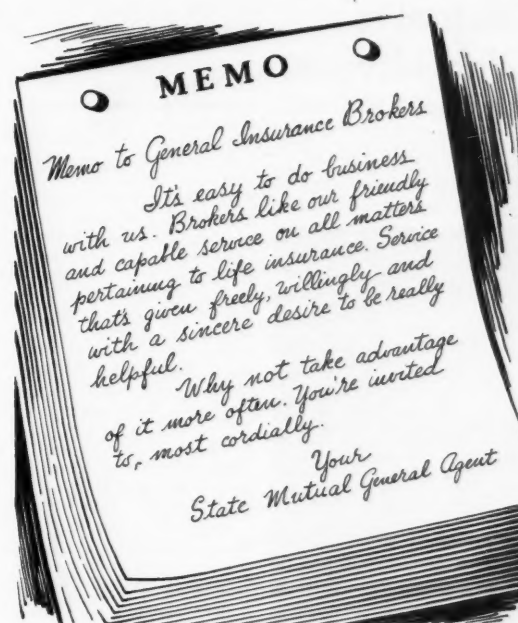 MEMO
Memo to General Insurance Brokers
It's easy to do business
with us. Brokers like our friendly
and capable service on all matters
pertaining to life insurance. Service
that's given freely, willingly-and
with a sincere desire to be really
helpful.
Why not take advantage
of it more often. You're invited
to, most cordially.
Your
State Mutual General Agent